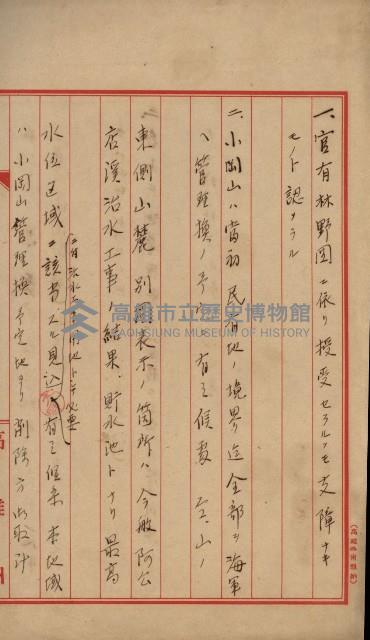 一、官有林野図ニ依リ授受セラルルモ支障ナキ
モノト認メラル
二、小岡山ハ当初民有地ノ境界迄全部ヲ海軍
ヘ管理換ノ予定ニ有之候処
東側山麓別図表示ノ箇所ハ今般阿公
店溪治水工事ノ結果、貯水池トナリ最高
水位区域ニ該当スル見込ニ有之候条本地域
ハ小岡山管理換予定地ヨリ削除方御取計
高雄市立歷史博物館
KAOHSIUNG MUSEUM OF HISTORY
高雄州